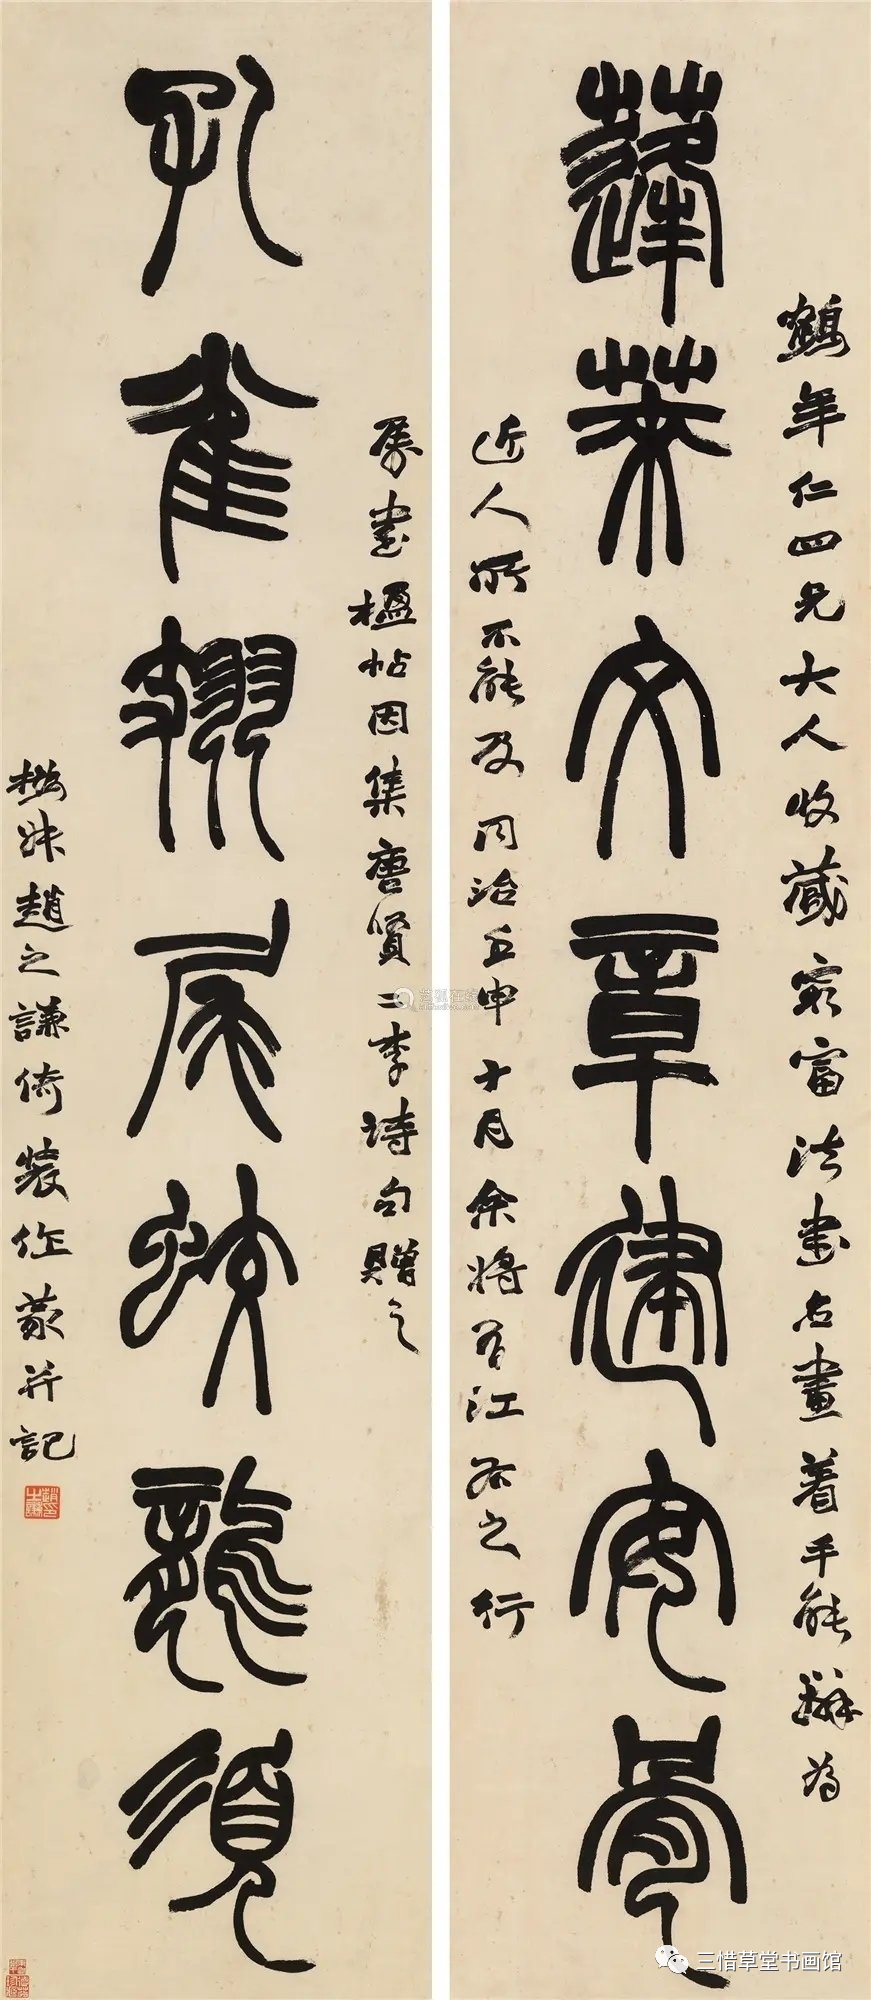 蓬萊文章建安骨
鶴年仁四兄大人收藏最富法書名畫着手能辨為
近人所不能及同治壬申十月余將有江右之行
孔雀翅尾蛟龍須
屬書楹帖因集唐賢二李詩句贈之
撝叔趙之謙倚裝作篆并記
三惜草堂书画馆